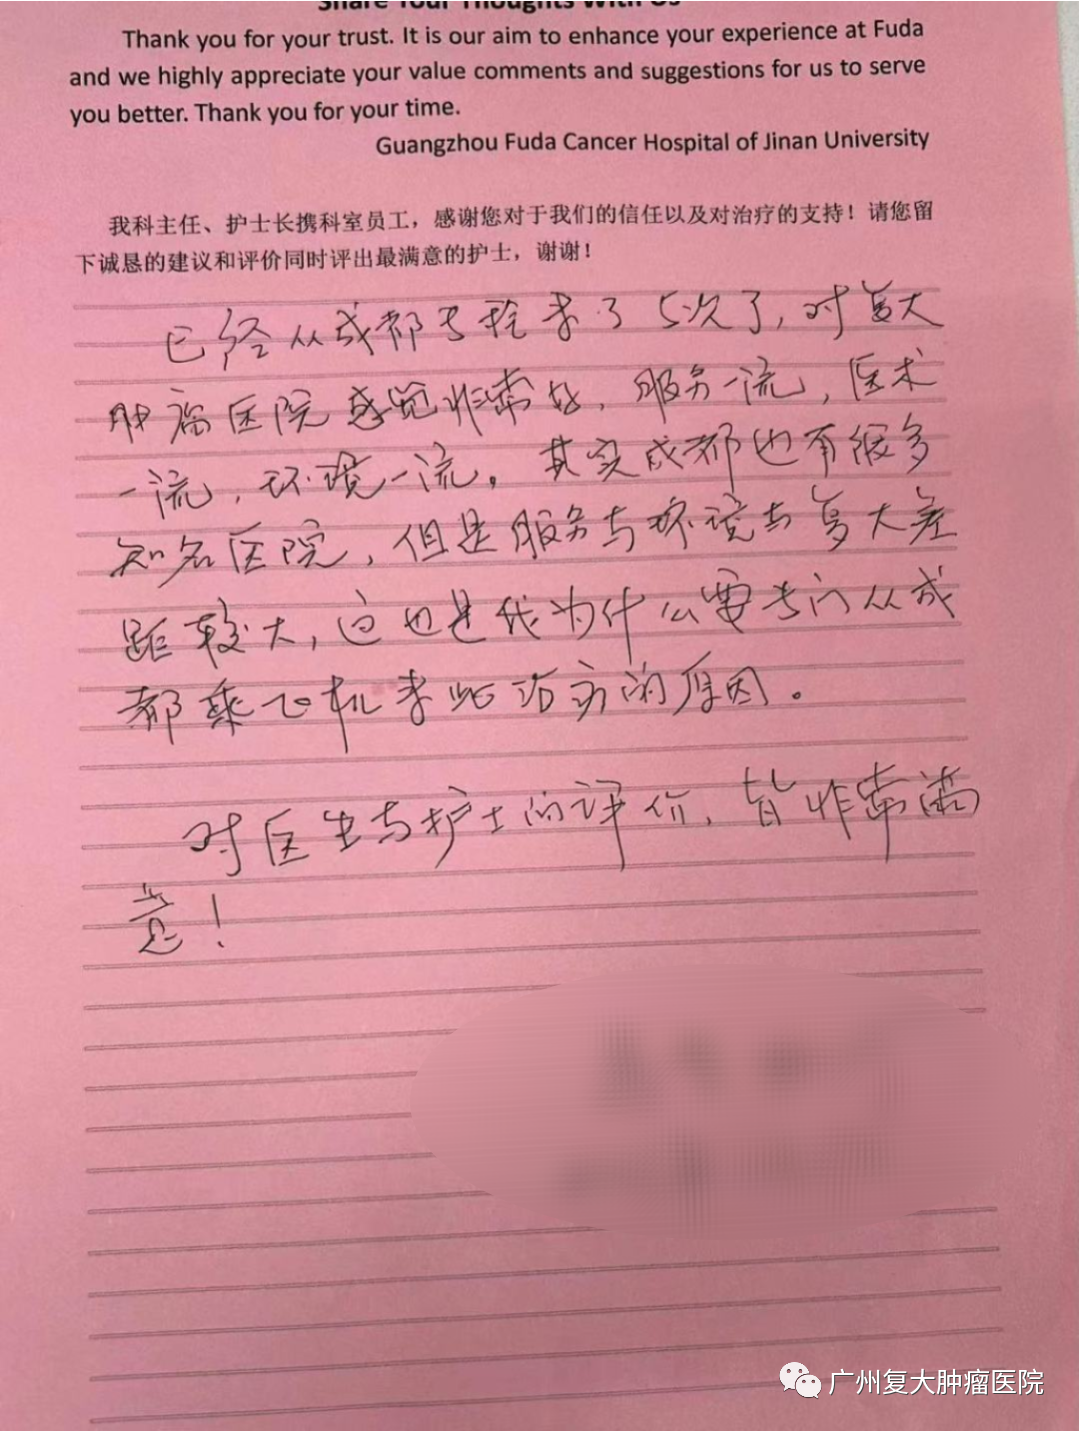 Share Your Thoughts With Us
Thank you for your trust. It is our aim to enhance your experience at Fuda
and we highly appreciate your value comments and suggestions for us to serve
you better. Thank you for your time.
Guangzhou Fuda Cancer Hospital of Jinan University
我科主任、护士长携科室员工，感谢您对于我们的信任以及对治疗的支持！请您留
下诚恳的建议和评价同时评出最满意的护士，谢谢！
已经从成都专程来了5次了，对复大
肿瘤医院感觉非常好，服务一流，医术
一流，环境一流。其实成都也有很多
知名医院，但是服务与环境与复大差
距较大，这也是我为什么要专门从成
都乘飞机来此治疗的原因。
对医生与护士的评价，皆非常满
意！
广州复大肿瘤医院